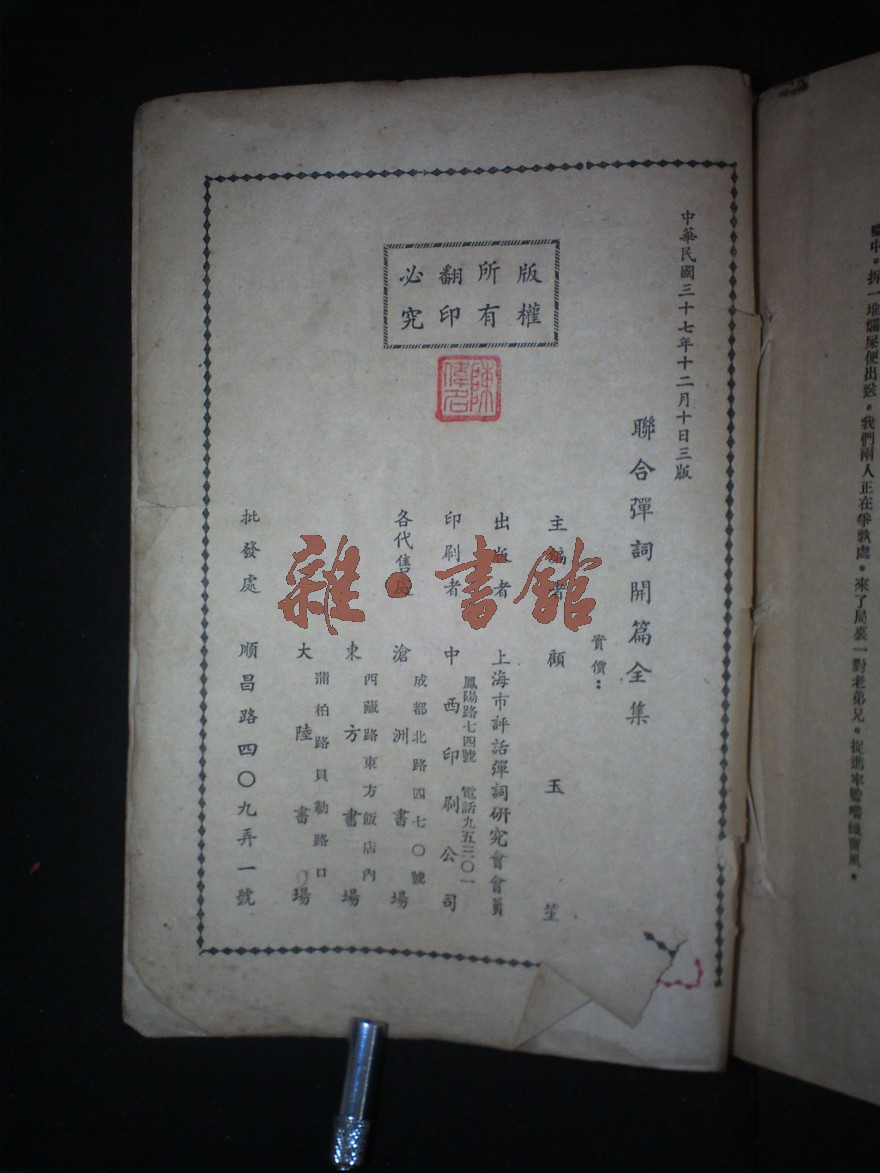 中華民國三十七年十二月十日三版
聯合彈詞開篇全集
實價：
版權
所有
翻印
必究
主編者　顧玉笙
出版者　上海市評話彈詞研究會會員
印刷者　中西印刷公司
鳳陽路七四號　電話九五三〇一
各代售處　滄洲書場
成都北路四七〇號
東方書場
西藏路東方飯店內
大陸書場
蒲柏路貝勒路口
批發處　順昌路四〇九弄一號
雜·書館
拆一堆爛屎便出送。我們兩人正在爭執處。來了局裏一對老弟兄。